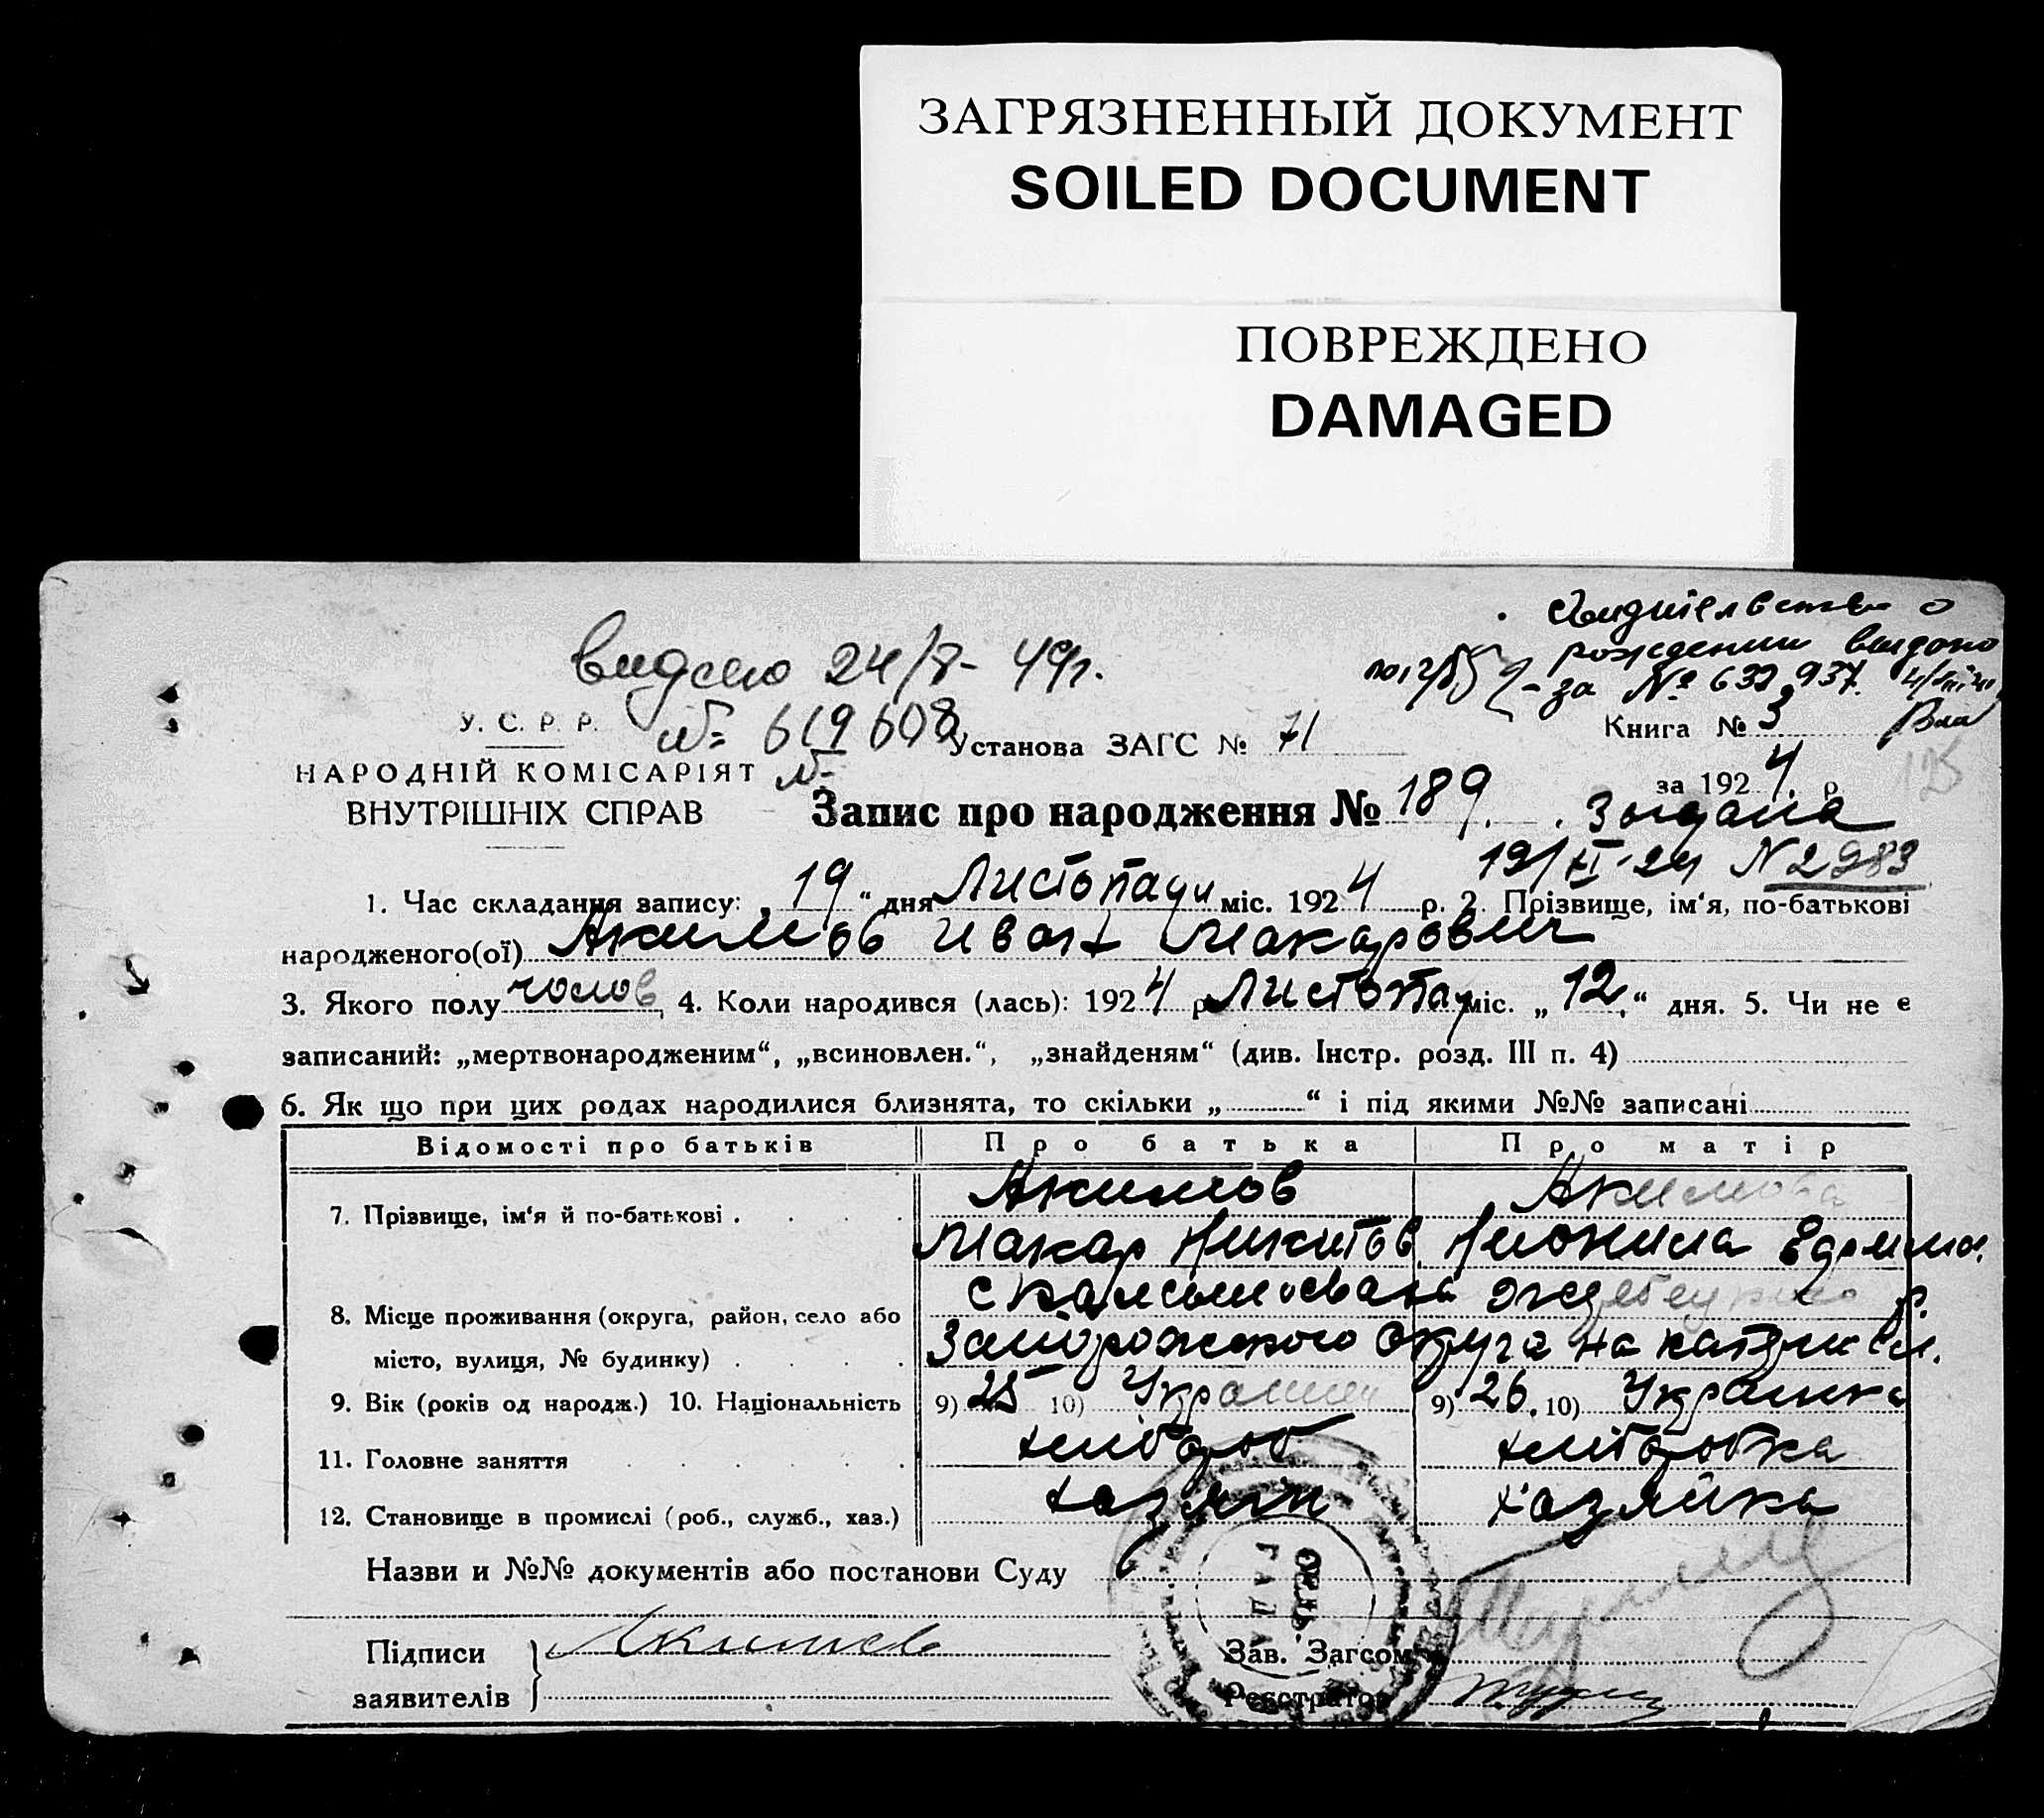 ЗАГРЯЗНЕННЫЙ ДОКУМЕНТ
SOILED DOCUMENT
ПОВРЕЖДЕНО
DAMAGED
о
рождении выдано
за № 632937.
видано 24/8- 49 г.
№ 619608
У. С. Р. Р.
Установа ЗАГС № 71
Книга № 3
НАРОДНІЙ КОМІСАРІЯТ
ВНУТРІШНІХ СПРАВ
за 1924 р.
Запис про народження № 189.
19/XI-24 N 2983
1. Час складання запису: „19“ дня Листопади міс. 1924 р. 2. Прізвище, ім‘я, по-батькові
народженого(ої) Акимов Иван Макарович
3. Якого полу чолов 4. Коли народився (лась): 1924 р Листопад міс. „12.“ дня. 5. Чи не є
записаний: „мертвонародженим“, „всиновлен.“, „знайденям“ (див. Інстр. розд. III п. 4)
6. Як що при цих родах народилися близнята, то скільки „ “ і під якими №№ записані
Відомості про батьків Про батька Про матір
7. Прізвище, ім‘я й по-батькові Акимов Акимова
Макар Никитов
8. Місце проживання (округа, район, село або
місто, вулиця, № будинку) Запорожского Округа на
9. Вік (років од народж.) 10. Національність 9) 25 10) Украинец 9) 26. 10) Украинка
11. Головне заняття хлібороб хліборобка
12. Становище в промислі (роб., служб., хаз.) хазяин хазяйка
Назви и №№ документів або постанови Суду
РАДА
Підписи Акимов Зав. Загсом
заявителів Реєстратор